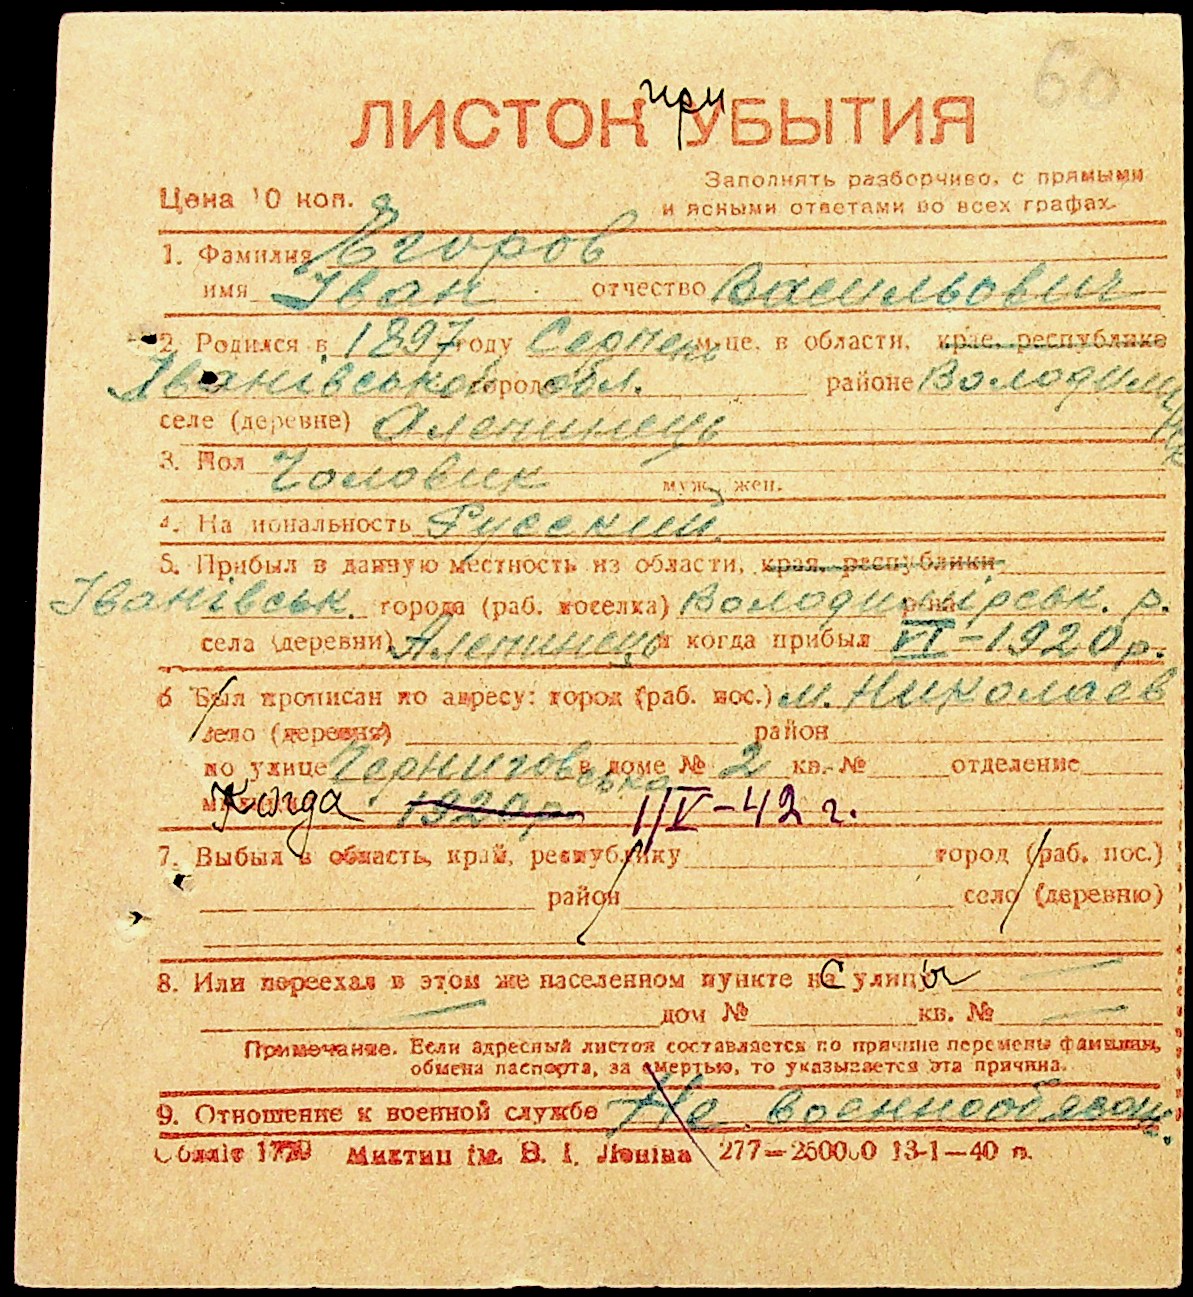 60
при
ЛИСТОК УБЫТИЯ
Цена 10 коп.
Заполнять разборчиво, с прямыми
и ясными ответами во всех графах.
1. Фамилия Егоров
имя Іван отчество Васильович
2. Родился в 1897 году Серпень м-це, в области, крае, республике
Іванівськой городе обл. районе Володимирськ
селе (деревне) Аленинець
3. Пол Чоловик муж., жен.
4. Национальность Русский.
5. Прибыл в данную местность из области, края, республики
Іванівськ. города (раб. поселка) Володимирськ. р. р-на
села (деревни) Аленинець и когда прибыл VI-1920 р.
6 Был прописан по адресу: город (раб. пос.) м. Николаев
село (деревня) район
по улице Черниговська в доме № 2 кв. № отделение
Когда 1920 р 1/IV-42 г.
7. Выбыл в область, край, республику город (раб. пос.)
район село (деревню)
8. Или переехал в этом же населенном пункте на с улицы
дом № кв. №
Примечание. Если адресный листок составляется по причине перемены фамилии,
обмена паспорта, за смертью, то указывается эта причина.
9. Отношение к военной службе Не военнообязан.
Обліт 1759 Миктип ім. В. І. Леніна 277—250000 13-1—40 п.